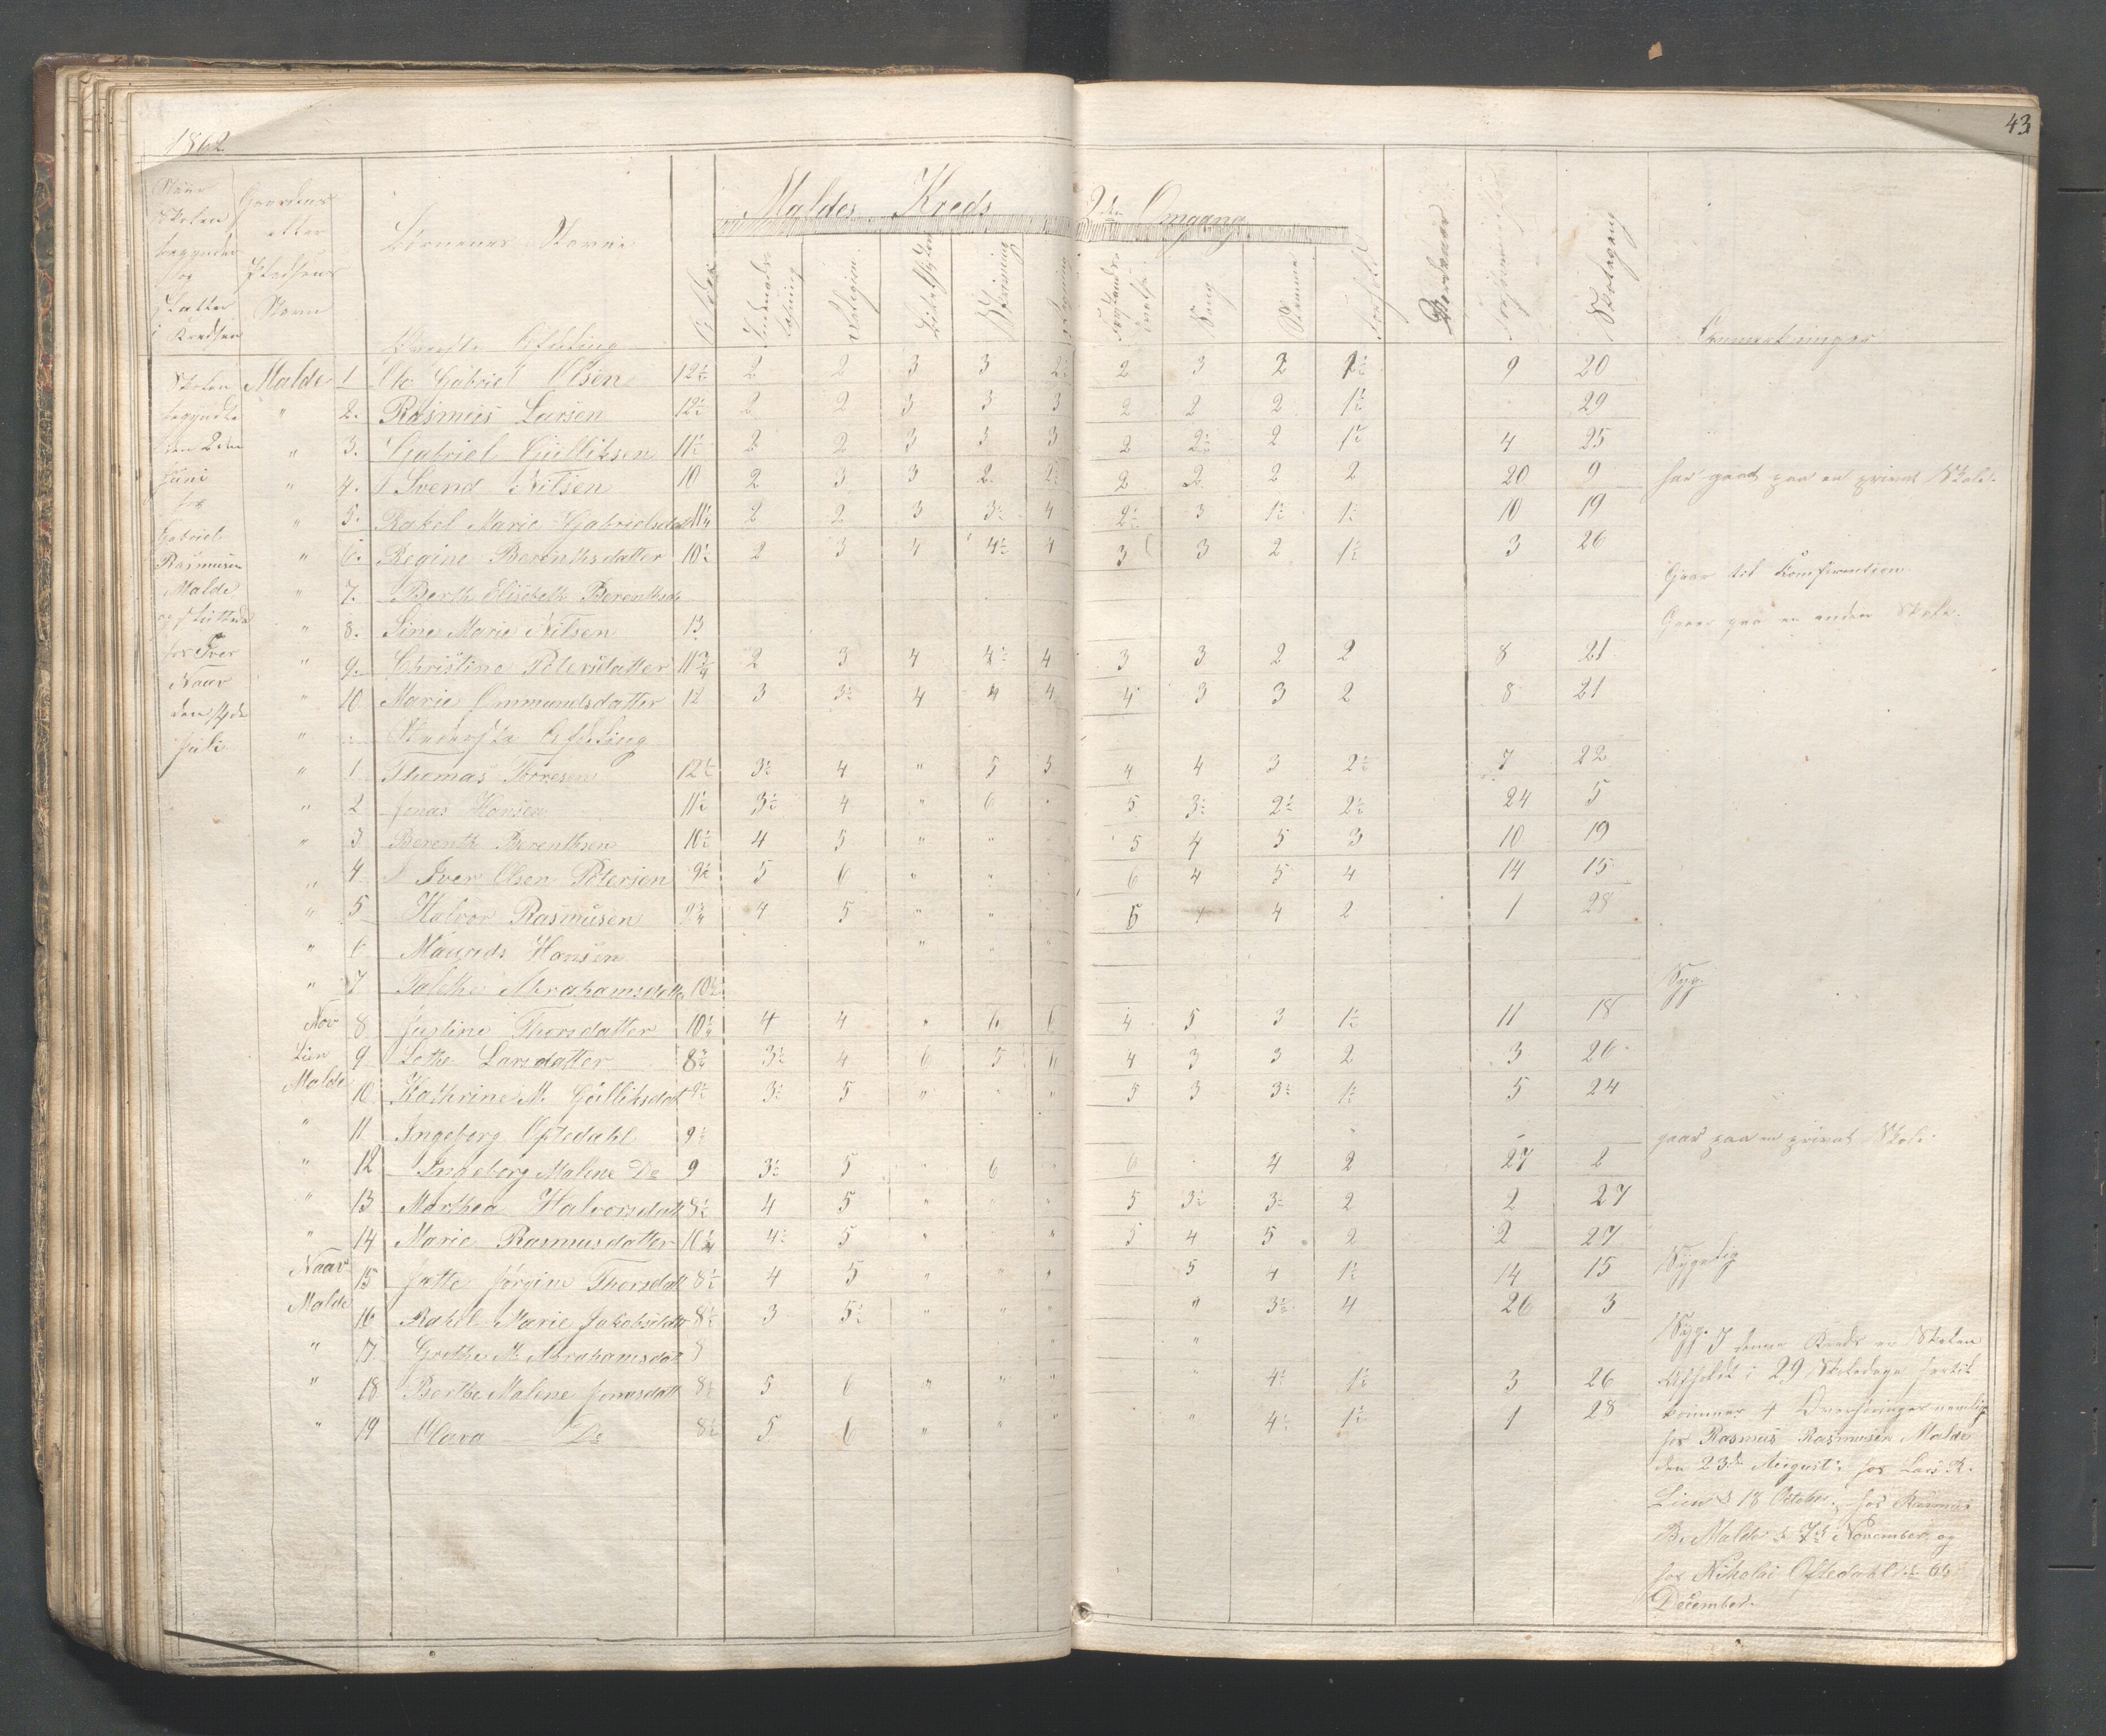 1862
43
Maldes Kreds 2den Omgang
Naar Skolen begynder og slutter i Kredsen
Gaardens eller Pladsens Navn
Børnenes Navne
Alder
Religion
Regning
Sang
Forhold
Skolegang
Anmærkninger
Skolen begyndte den 2den Juni hos Gabriel Rasmusen Malde og sluttede hos Iver Naar den 14de Juli
Øverste Afdeling
Malde 1 Ole Gabriel Olsen 12½ 2 2 3 3 2½ 2 3 2 1½ 9 20
" 2. Rasmus Larsen 12½ 2 2 3 3 3 2 2 2 1½ 29
" 3. Gabriel Gulliksen 11½ 2 2 3 3 3 2 2½ 2 1½ 4 25
" 4. Svend Nilsen 10 2 3 3 2 2½ 2 2 2 2 20 9 har gaaet paa en privat Skole.
" 5. Rakel Marie Gabrielsdatt 11¼ 2 2 3 3½ 4 2½ 3 1½ 1½ 10 19
" 6. Regine Berentsdatter 10½ 2 3 4 4½ 4 3 3 2 1½ 3 26
" 7. Berth Elisebeth Berentsd Gaar til Konfirmation.
" 8. Sine Marie Nilsen 13 Gaaer paa en anden Skole.
" 9. Christine Petersdatter 11¾ 2 3 4 4½ 4 3 3 2 2 8 21
" 10. Marie Ommundsdatter 12 3 3½ 4 4 4 4 3 3 2 8 21
" Nederste Afdeling
" 1 Thomas Torresen 12½ 3½ 4 " 5 5 4 4 3 2½ 7 22
" 2 Jonas Hansen 11½ 3½ 4 " 6 5 3½ 2½ 2½ 24 5
" 3 Berenth Berenthsen 10½ 4 5 " " 5 4 5 3 10 19
" 4 Iver Olsen Petersen 9½ 5 6 " " 6 4 5 4 14 15
" 5 Halvor Rasmusen 9¾ 4 5 " " 5 4 4 2 1 28
" 6 Maurids Hansen " " "
" 7 Malthe Abrahamsdatter 10½ Syg.
Nov 8 Justine Thorsdatter 10½ 4 4 " 6 6 4 5 3 1½ 11 18
Lien 9 Lethe Larsdatter 8¾ 3½ 4 6 5 6 4 3 3 2 3 26
Malde 10 Kathrine M. Gulliksdat 9½ 3½ 5 " " " 5 3 3½ 1½ 5 24
" 11 Ingeborg Oftedahl 9½ gaar paa en privat Skole.
" 12 Ingeborg Malene Do 9 3½ 5 " 6 6 4 2 27 2
" 13 Marthea Halvorsdatt 8½ 4 5 " " " 5 3½ 3½ 2 2 27
" 14 Marie Rasmusdatter 10¼ 4½ 5 " " 5 4 5 2 2 27
Naar 15 Jatte Jørgine Thorsdatt 8½ 4 5 " " " 5 4 1½ 14 15 Sygelig
Malde 16 Rakel Marie Jakobsdatt 8½ 3 5½ " " " " 3½ 4 26 3
" 17 Grethe M. Abrahamsdatt " " Syg.
" 18 Berthe Malene Jonasdatt 8½ 5 6 " " " " 4½ 1½ 3 26
" 19 Olava Do 8½ 5 6 " " " " 4½ 1½ 1 28
I denne Kreds er Skolen
afholdt i 29 Skoledage hertil
kommer 4 Overhøringer nemlig
hos Rasmus Rasmusen Malde
den 23de August, hos Lars R.
Lien d 18 Oktober, hos Rasmus
B. Malde d 7de November og
hos Nikolai Oftedahl d. 6te
December.